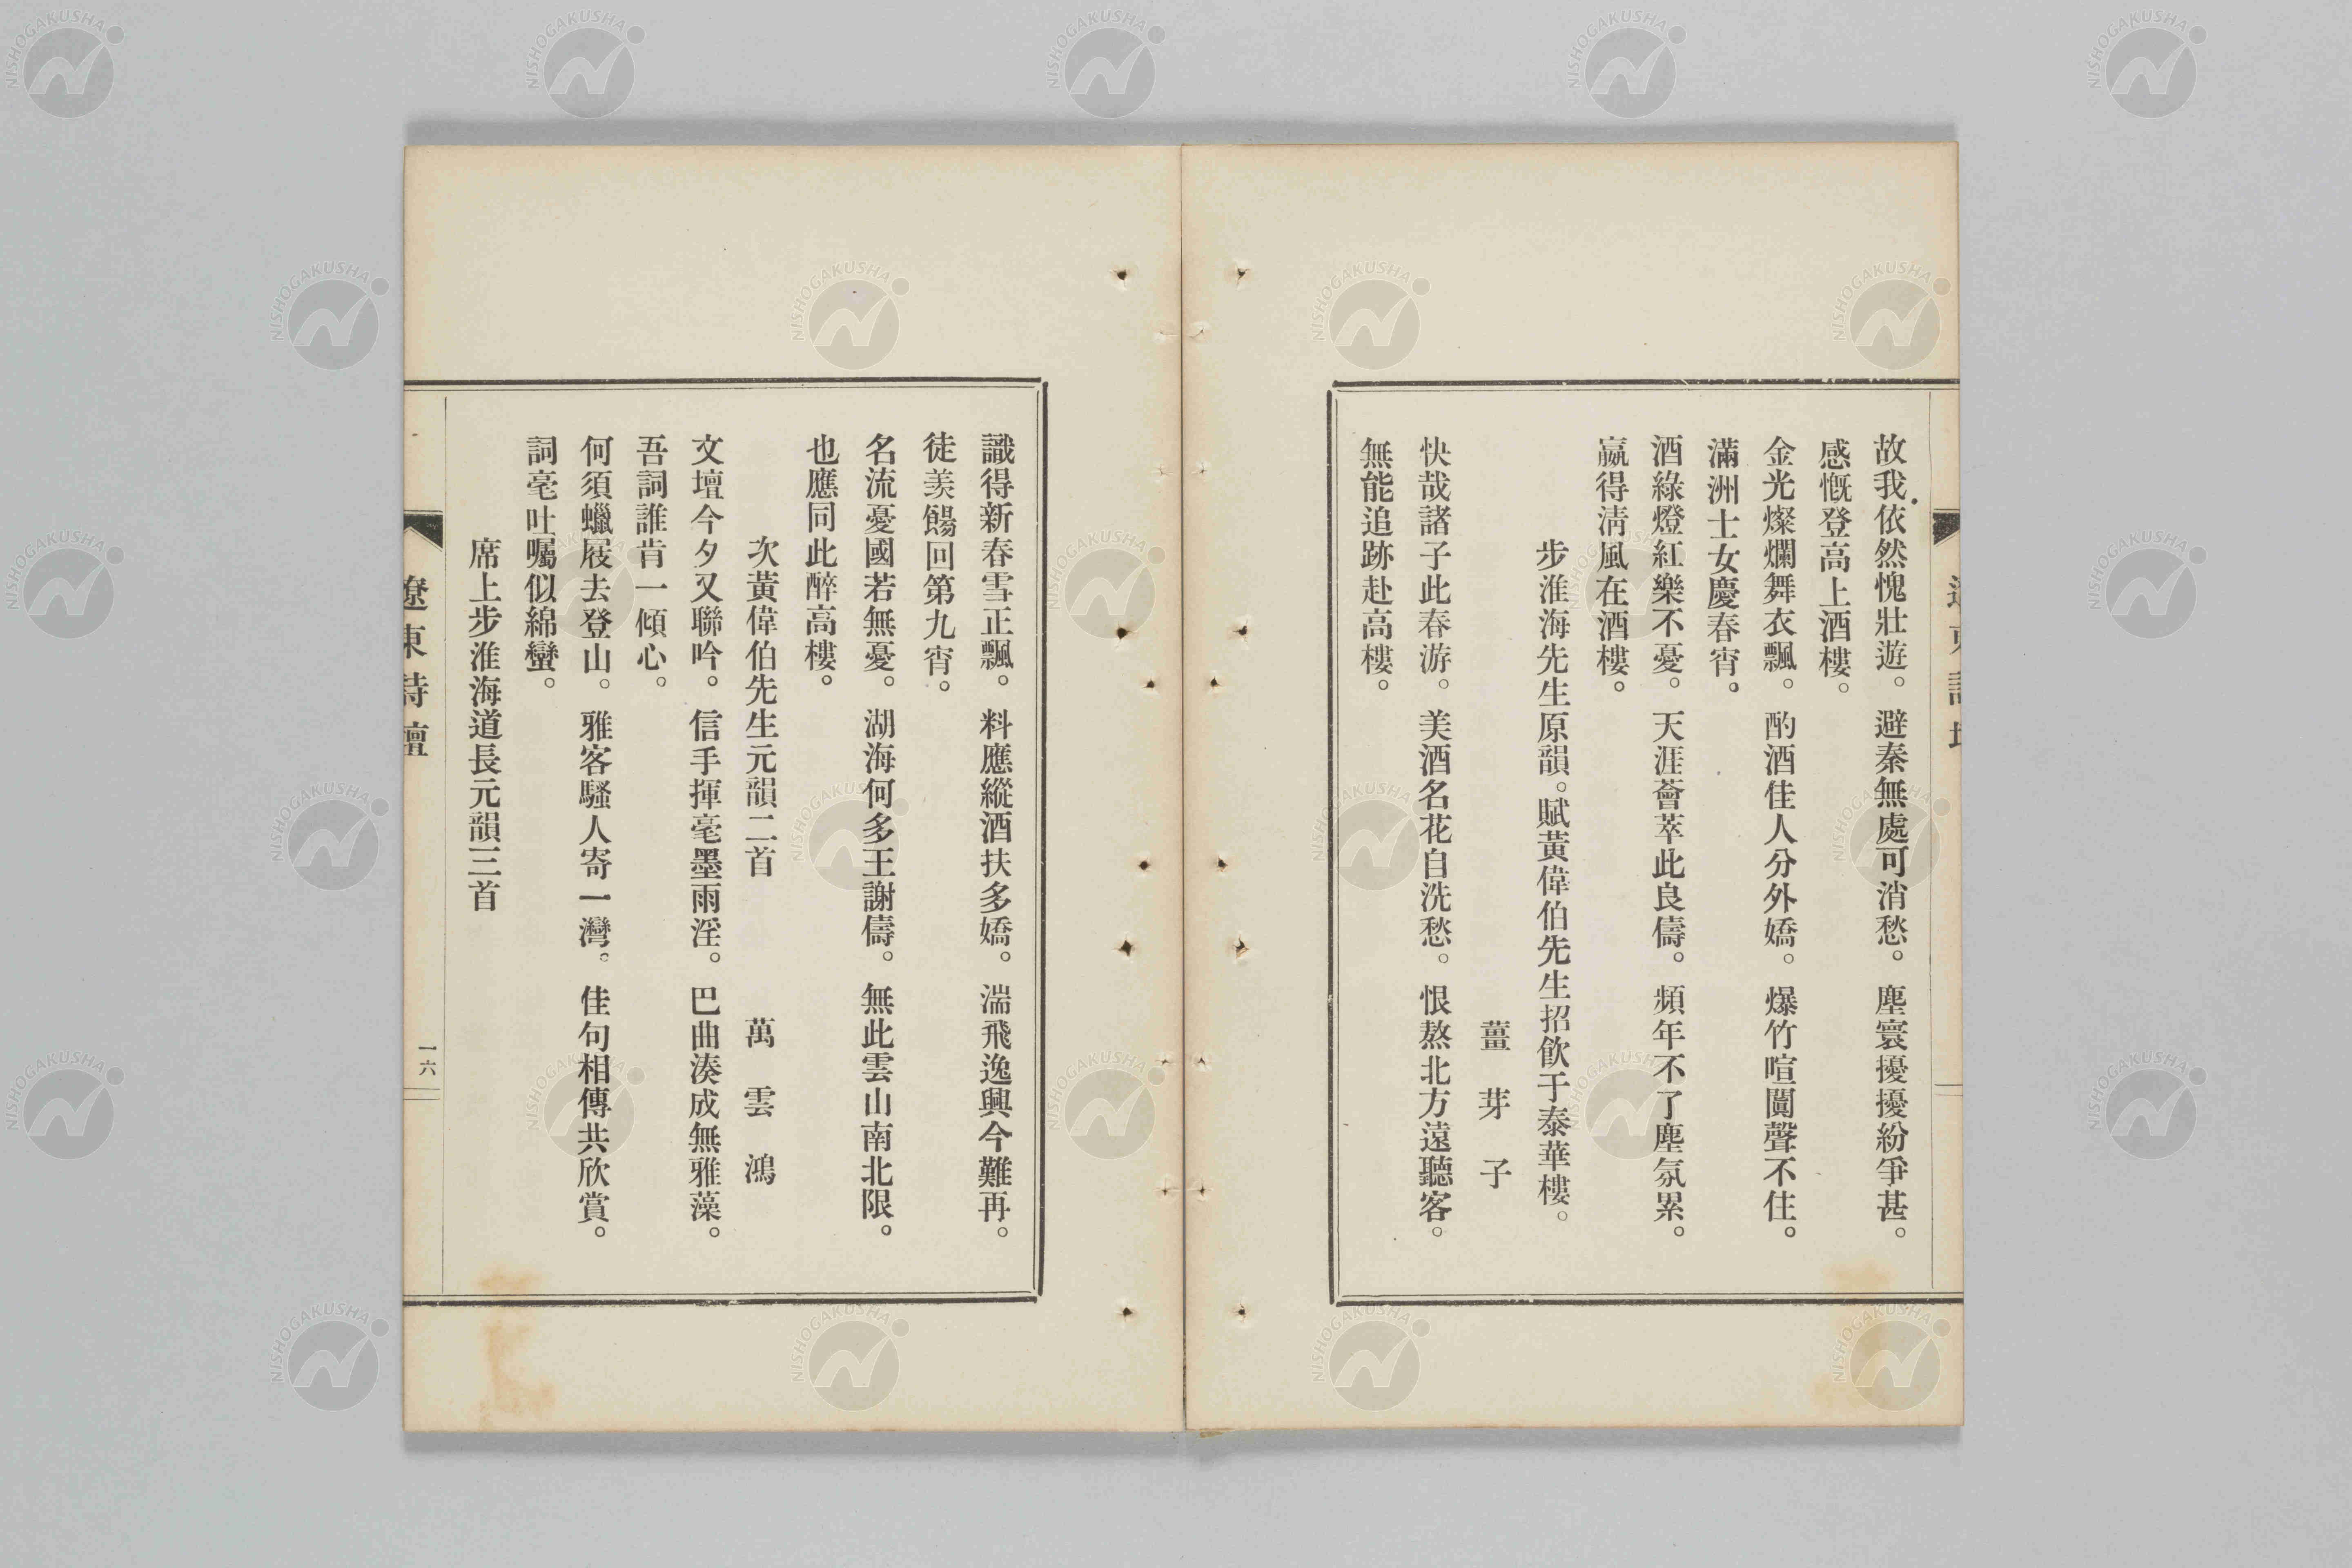 故我依然愧壯遊。避秦無處可消愁。塵寰擾擾紛爭甚。
感慨登高上酒樓。
金光燦爛舞衣飄。酌酒佳人分外嬌。爆竹喧闐聲不住。
滿洲士女慶春宵。
酒綠燈紅樂不憂。天涯薈萃此良儔。頻年不了塵氛累。
贏得淸風在酒樓。
步淮海先生原韻。賦黃偉伯先生招飲于泰華樓。
薑芽子
快哉諸子此春游。美酒名花自洗愁。恨熬北方遠聽客。
無能追跡赴高樓。
識得新春雪正飄。料應縱酒扶多嬌。湍飛逸興今難再。
徒羨觴回第九宵。
名流憂國若無憂。湖海何多王謝儔。無此雲山南北限。
也應同此醉高樓。
次黃偉伯先生元韻二首 萬雲鴻
文壇今夕又聯吟。信手揮毫墨雨淫。巴曲湊成無雅藻。
吾詞誰肯一傾心。
何須蠟屐去登山。雅客騷人寄一灣。佳句相傳共欣賞。
詞毫吐囑似綿蠻。
席上步淮海道長元韻三首
遼東詩壇
一六
NISHOGAKUSHA